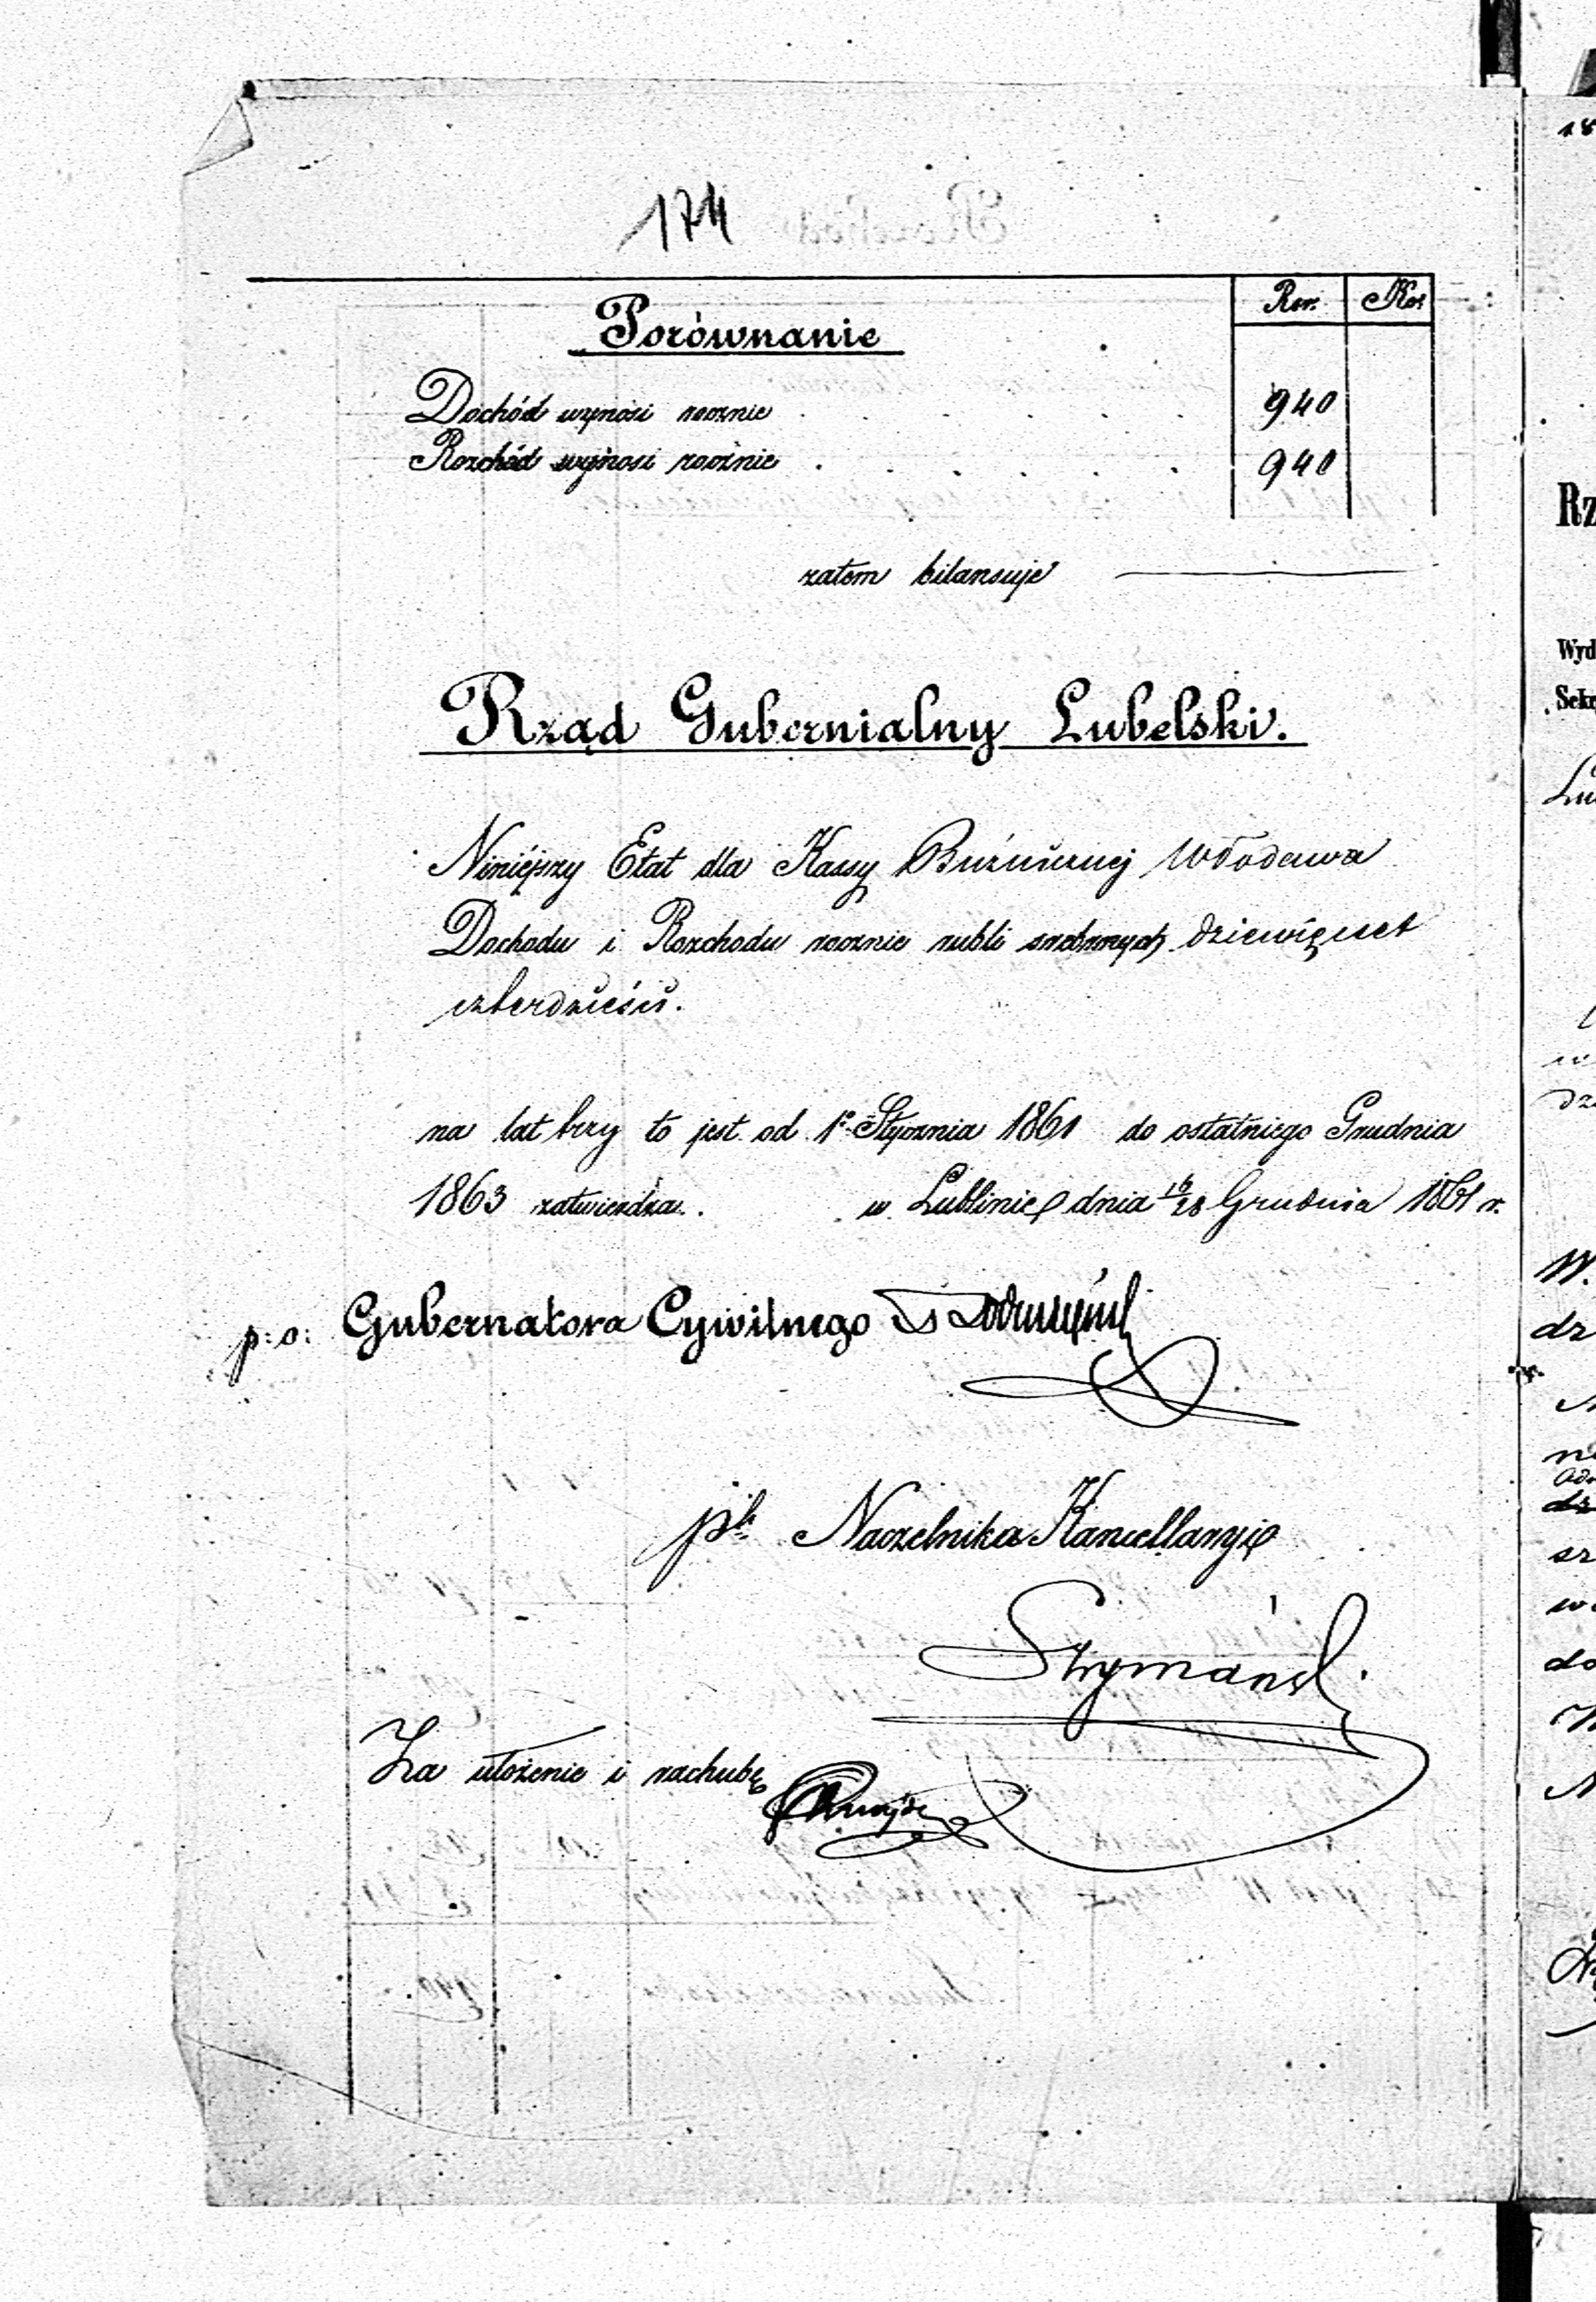 174
Porównanie
Rsr. Kop.
Dochód wynosi rocznie 940
Rozchód wynosi rocznie 940
zatem bilansuje
Rząd Gubernialny Lubelski.
Niniéjszy Etat dla Kassy Bużnicznej Włodawa
Dochodu i Rozchodu rocznie rubli srebrnych dziewięćset
czterdzieści.
na lat trzy to jest od 1º Stycznia 1861 do ostatniego Grudnia
1863 zatwierdza. w Lublinie dnia 16/28 Grudnia 1861 r.
p: o: Gubernatora Cywilnego
Naczelnika Kancellaryi
Szymańsk
Za ułożenie i rachubę
18
Rz
Wyd
Sekr
Lu
dz
W.
dz